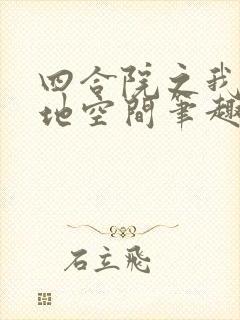 四合院之我
地空间笔趣
石立飛